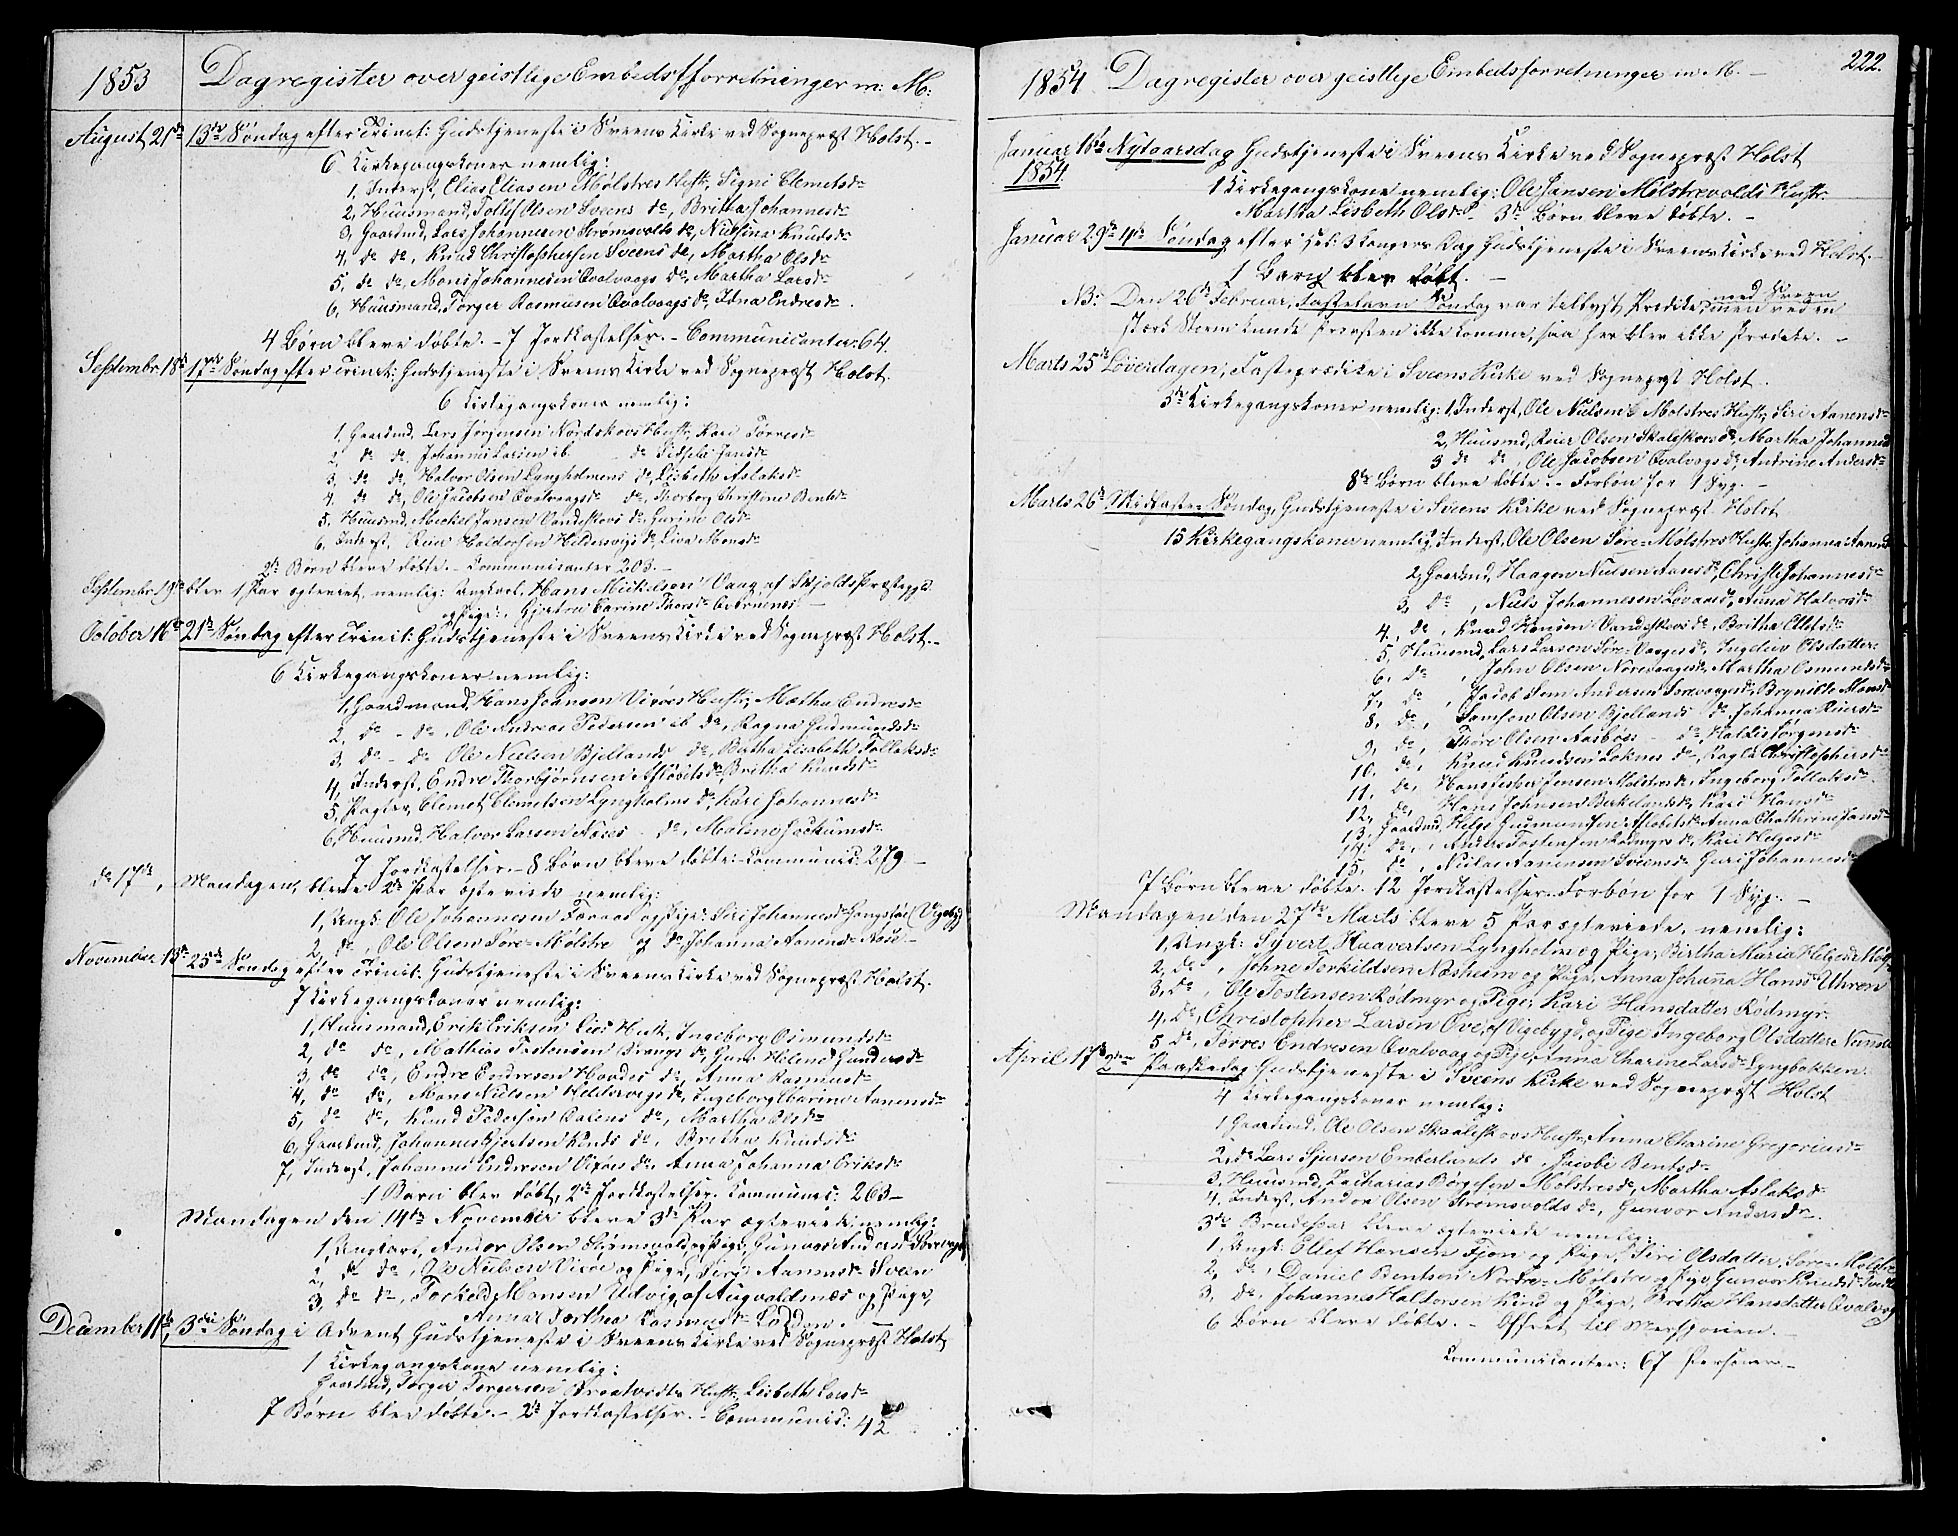 1853
Dagregister over geistlige Embedsforretninger m: M:
August 21de 13de Søndag efter Trinit: Gudstjeneste i Sveens Kirke ved Sognepræst Holst.-
6 Kirkegangskoner nemlig:
1, Inderst, Elias Eliasen Mølstres Hustr, Signi Clemetsdr
2, Huusmand, Tollef Olsen Sveens do, Britha Johannesdr
3, Gaardmd, Lars Johannesen Strømsvolds do, Knudsdr
4, do do, Knud Christophersen Sveens do, Martha Olsdr
5, do do, Mons Johannesen Qvalvaags do, Martha Larsdr
6, Huusmand, Torger Rasmusen Qvalvaags do, Edna Endresdr
4 Børn bleve døbte. - 7 Jordkastelser. - Communicanter: 64.
Septembr. 18de 17de Søndag efter Trinit: Gudstjeneste i Sveens Kirke ved Sognepræst Holst.
6 Kirkegangskoner nemlig:
1, Gaardmd, Lars Jørgensen Nordskovs Hustr, Kari Torresdr
2, do do, Johannes Larsen ib do Jansdr
3, do do, Halvor Olsen Lyngholmens do, Lisbeth Aslaksdr
4, do do, Ole Jacobsen Qvalvaags do, Thorborg Christine Bentsdr
5, Huusmd, Meckel Jansen Vandeskovs do, Gurine Olsdr
6, Inderst, Haldorsen do, Liva Monsdr
2de Børn bleve døbte. - Communicanter 203. -
Septembr. 19de blev 1 Par egteviet, nemlig: Ungkarl, Hans Mickelsen Vaag af Skjolds Præstegjd
og Pige: Gjertru Carine Thorsdr
October 16de 21de Søndag efter Trinit: Gudstjeneste i Sveens Kirke ved Sognepræst Holst.-
6 Kirkegangskoner nemlig:
1, Gaardmand, Hans Johansen Vixøes Hustr, Metha Endresdr
2, do - do, Ole Andreas Pedersen ib do, Ragna Gudmundsdr
3, do - do Ole Nielsen Bjellands do, Bertha Lisabeth Tollaksdr
4, Inderst, Endre Thorbjørnsen do Britha Knudsdr
5, Pagter, Clemet Clemetsen Lyngholms do, Kari Johannesdr
6, Huusmd, Halvor Larsen do, Malene Jochumsdr
7 Jordkastelser - 8 Børn bleve døbte - Communic: 279 -
do 17de, Mandagen, bleve 2de Par egteviede nemlig:
1, Ungk: Ole Johannesen og Pige: Siri Johannesdr (Vigebygd)
2, do, Ole Olsen Søre-Mølstre og do, Johanna Aanensdr
November 13de 25de Søndag efter Trinit: Gudstjeneste i Sveens Kirke ved Sognepræst Holst.
7 Kirkegangskoner nemlig:
1, Huusmand, Erik Eriksen Lies Hustr, Ingeborg Osmundsdr
2, do do, Mathias Tostensen do, Guro Helene Gundersdr
3, do do, Endre Endresen do, Anna Rasmusdr
4, do do, Mons Nielsen do, Ingeborg Carine Aanensdr
5, do do, Knud Pedersen do, Martha Olsdr
6, Gaardmd, Johannes Gjertsen Kinds do, Britha Knudsdr
7, Inderst, Johannes Endresen Vixøes do, Anna Johanna Eriksdr
1 Barn blev døbt, 2de Jordkastelser. Communic: 263 -
Mandagen den 14de November bleve 3de Par egteviede, nemlig:
1, Ungkarl, Andor Olsen Strømsvold og Pige, Gunvor Andersdr
2, do do, Ole Nielsen Vixøe og Pige, Siri Aanensdr Sveen
3, do do, Torkild Monsen Udvig, af Augvaldsnæs og Pige,
Anna Dorthea Rasmusdr
December 11te, 3die Søndag i Advent Gudstjeneste i Sveens Kirke ved Sognepræst Holst
1 Kirkegangskone nemlig:
Gaardmd, Torger Torgersen Hustr, Lisbeth Larsdr
7 Børn blev døbte. - 2de Jordkastelser. - Communic: 42
222.
1854
Dagregister over geistlige Embedsforretninger m M. -
Januar 1ste Nytaarsdag Gudstjeneste i Sveens Kirke ved Sognepræst Holst
1854
1 Kirkegangskone nemlig: Ole Jansen Mølstrevolds Hustr.
Martha Lisbeth Olsdr - 3de Børn bleve døbte. -
Januar 29de 4de Søndag efter hel: 3 Kongers Dag Gudstjeneste i Sveens Kirke ved Holst. -
1 Barn blev døbt. -
NB: Den 26de Februar, Fastelavn Søndag var tillyst Prædiken ved Sveen men ved en
stærk Storm kunde Præsten ikke komme, saa her blev ikke Prædike. -
Marts 25de Løverdagen, Fasteprædike i Sveens Kirke ved Sognepræst Holst.
5de Kirkegangskoner nemlig: 1, Inderst, Ole Nielsen Mølstres Hustr, Siri Aanensdr
2, Huusmd, Reier Olsen Skaleskovs do, Martha Johannesdr
3 do do, Ole Jacobsen Qvalvags do, Andrine Andersdr
8te Børn bleve døbte. - Forbøn for 1 Syg. -
Marts 26de Midfaste-Søndag, Gudstjeneste i Sveens Kirke ved Sognepræst Holst
15 Kirkegangskoner nemlig, 1, Inderst, Ole Olsen Søre-Mølstres Hustr. Johanna Aanensdr
2, Gaardmd, Haagen Nielsen do, Christi Johannesdr
3, do, Niels Johannesen do, Anna Halvorsdr
4, do, Knud Hansen Vandeskovs do, Britha
5, Huusmd, Lars Larsen Søre-Vaages do, Ingeleiv Olsdatter
6, do, John Olsen Norevaages do, Martha Osmundsdr
7, do, Jacob Andersen Sørevaages do, Brynilde Monsdr
8, do, Samson Olsen Bjellands do, Johanna Reiersdr
9, do, Thore Olsen Aasboes - do, Haldis Jørgensdr
10, do, Knud Knudsen do, Christophersdr
11, do, Hans Jesper Jensen Mølstres do, Ingeborg Tollaksdr
12, do, Hans Johnsen Birkelands do, Kari Hansdr
13, Gaardmd, Helge do Anna Chathrine Jansdr
14, do, Anders Tostensen Rødmyrs do, Kari Helgesdr
15, do, Nielas Aanensen Sveens do Guri Johannesdr
7 Børn bleve døbte. 12 Jordkastelser. Forbøn for 1 Syg. -
Mandagen den 27de Marts bleve 5 Par egteviede, nemlig:
1, Ungk: Syvert Haavertsen Lyngholm og Pige, Birtha Maria Helgesdr
2, do, Johne Torkildsen Næsheim og Pige, Anna Johanna Hansdr Uhren
3, do, Ole Tostensen Rødmyr og Pige, Kari Hansdatter Rødmyr.
4, do, Christopher Larsen Øve, af Vigebygd, og Pige Ingeborg Olsdatter
5 do, Torres Endresen Qvalvaag og Pige, Anna Charine Larsdr Lyngbakken
April 17de 2den Paaskedag Gudstjeneste i Sveens Kirke ved Sognepræst Holst
4 Kirkegangskoner nemlig:
1, Gaardmd, Ole Olsen Skaaleskovs Hustr, Anna Charine Gregoriusdr
2, do Lars Sjursen Emberlands do Jacobe Bentsdr
3, Huusmd, Zacharias Børgesen Mølstres do, Martha Aslaksdr
4, Inderst, Andor Olsen Strømsvolds do, Gunvor Andersdr.
3de Brudepar bleve egteviede nemlig:
1, Ungk: Ellef Hansen Fjon og Pige, Siri Olsdatter, Søre-Mølstre
2, do, Daniel Bentsen Nordre-Mølstre og Pige Gunvor Knudsdr
3, do, Johannes Haldorsen Kind og Pige, Bretha Hansdatter Qvalvog
6 Børn bleve døbte. - Offret til Missionen. -
Communicanter: 67 Personer -